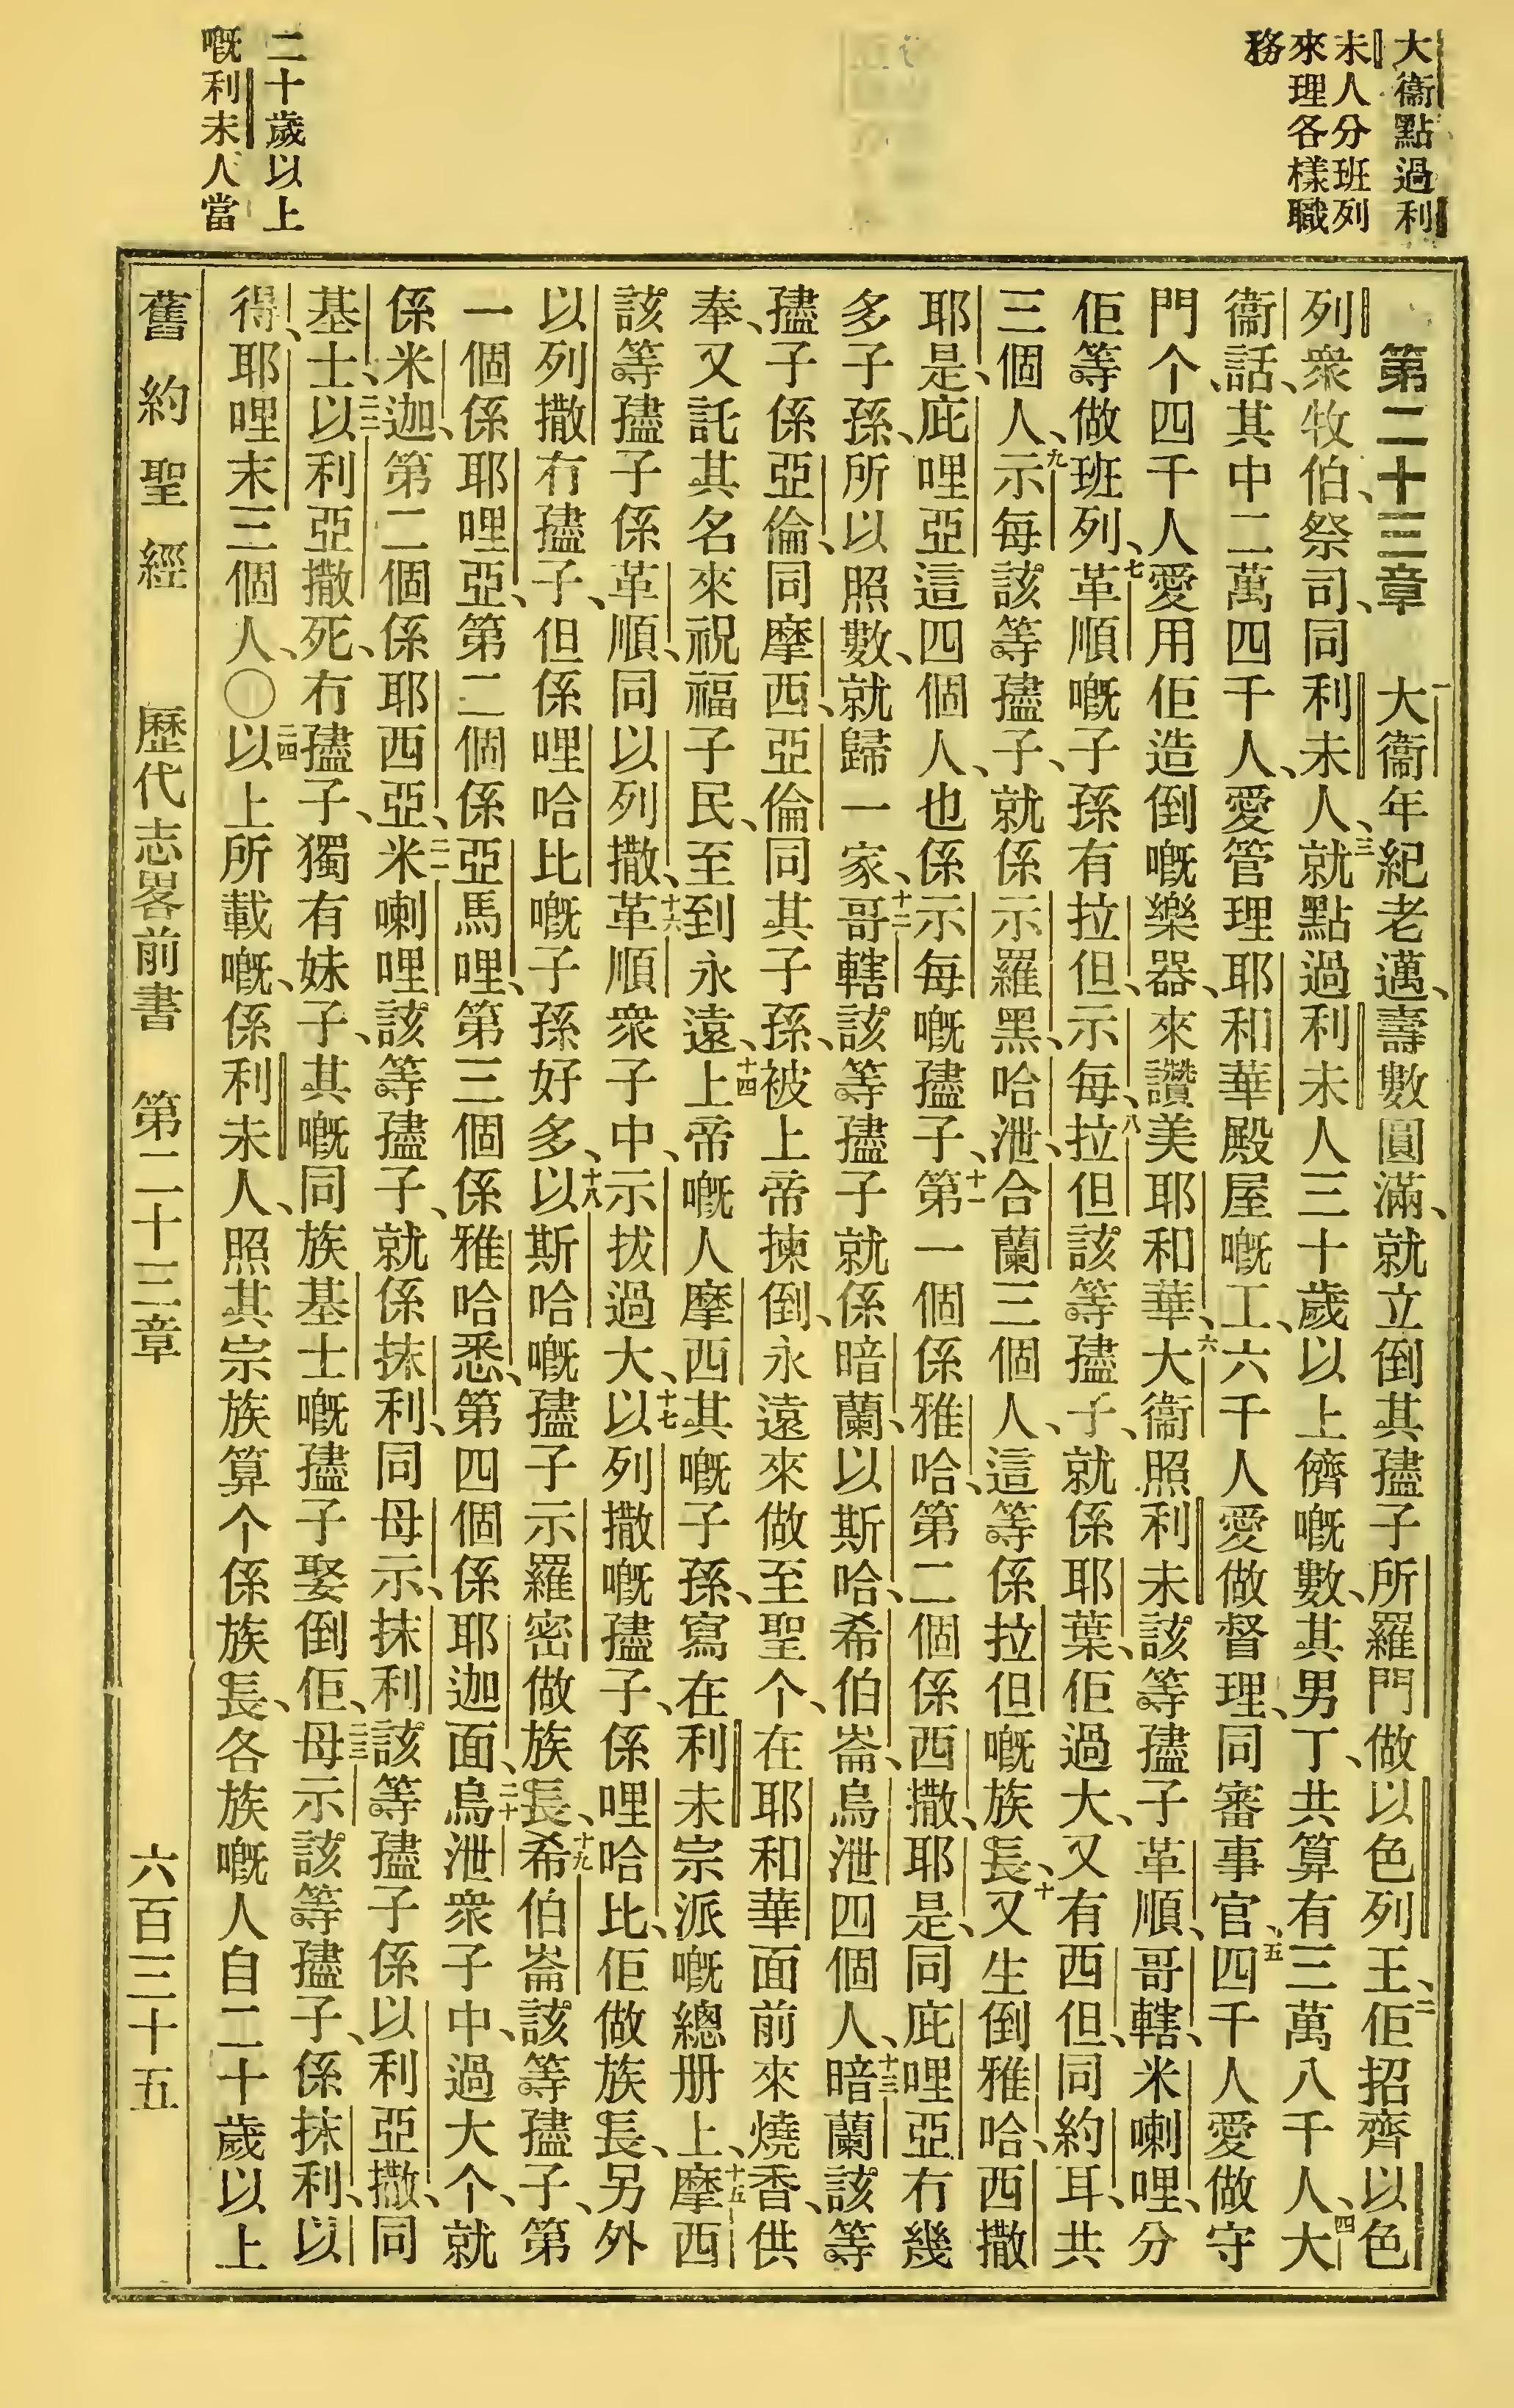 大衞點過利
未人分班列
來理各樣職
務
二十歲以上
嘅利未人當
第二十三章　一大衞年紀老邁、壽數圓滿、就立倒其𡥧子所羅門做以色列王、二佢招齊以色
列衆牧伯、祭司、同利未人、三就點過利未人三十歲以上儕嘅數、其男丁、共算有三萬八千人、四大
衞話、其中二萬四千人、愛管理耶和華殿屋嘅工、六千人愛做督理、同審事官、五四千人愛做守
門个、四千人愛用佢造倒嘅樂器、來讚美耶和華、六大衞照利未該等𡥧子革順、哥轄、米喇哩、分
佢等做班列、七革順嘅子孫有拉但、示每、八拉但該等𡥧子、就係耶葉、佢過大、又有西但、同約耳、共
三個人、九示每該等𡥧子、就係示羅黑、哈泄、合蘭三個人、這等係拉但嘅族長、十又生倒雅哈、西撒
耶是、庇哩亞這四個人、也係示每嘅𡥧子、十一第一個係雅哈、第二個係西撒、耶是、同庇哩亞冇幾
多子孫、所以照數、就歸一家、十二哥轄該等𡥧子就係暗蘭、以斯哈、希伯崙、烏泄四個人、十三暗蘭該等
𡥧子係亞倫、同摩西、亞倫同其子孫、被上帝揀倒、永遠來做至聖个、在耶和華面前來燒香、供
奉、又託其名來祝福子民、至到永遠、十四上帝嘅人摩西其嘅子孫、寫在利未宗派嘅總册上、十五摩西
該等𡥧子係革順、同以列撒、十六革順衆子中、示拔過大、十七以列撒嘅𡥧子、係哩哈比、佢做族長、另外
以列撒冇𡥧子、但係哩哈比嘅子孫好多、十八以斯哈嘅𡥧子示羅密做族長、十九希伯崙該等𡥧子、第
一個係耶哩亞、第二個係亞馬哩、第三個係雅哈悉、第四個係耶迦面、二十烏泄衆子中、過大个、就
係米迦、第二個係耶西亞、二一米喇哩該等𡥧子、就係抹利、同母示、抹利該等𡥧子係以利亞撒、同
基士、二二以利亞撒死、冇𡥧子、獨有妹子、其嘅同族基士嘅𡥧子娶倒佢、二三母示該等𡥧子、係抹利、以
得、耶哩末三個人、〇二四以上所載嘅、係利未人、照其宗族算个係族長、各族嘅人自二十歲以上
舊約聖經　歷代志畧前書　第二十三章　六百三十五